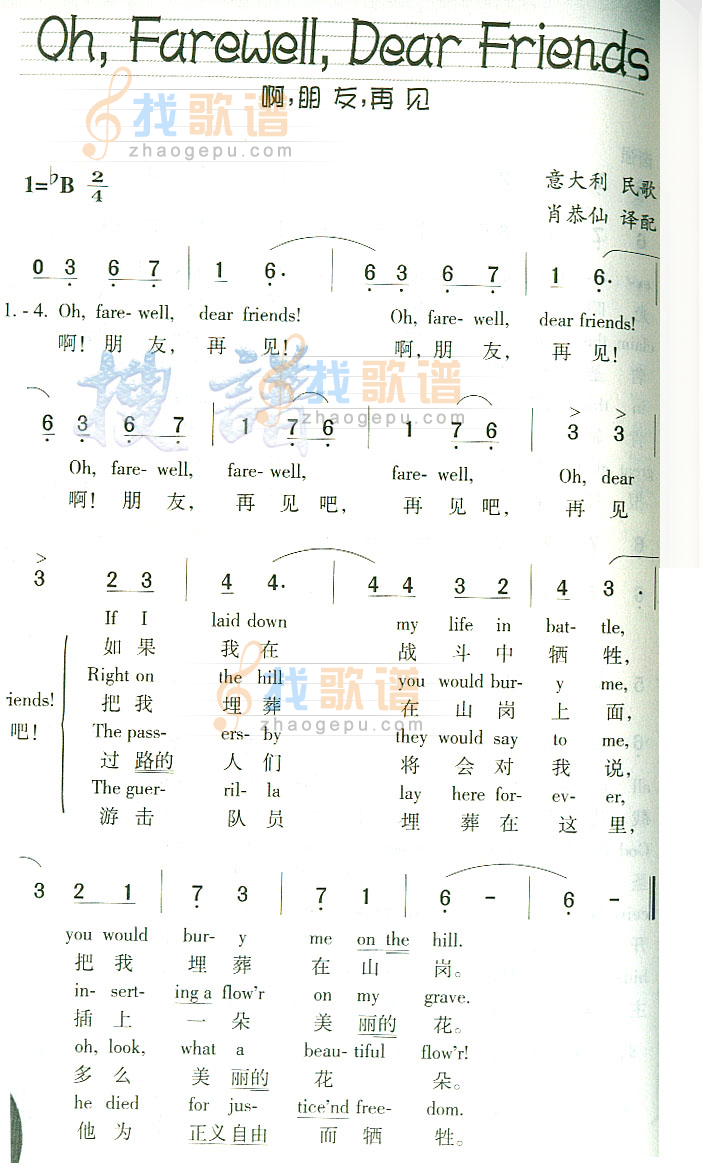 Oh, Farewell, Dear Friends
啊,朋友,再见
找歌谱
zhaogepu.com
1=♭B 2/4
意大利 民歌
肖恭仙 译配
0 3 6 7 | 1 6· | 6 3 6 7 | 1 6·
1.-4. Oh, fare- well, dear friends! Oh, fare- well, dear friends!
啊! 朋 友, 再 见! 啊, 朋 友, 再 见!
搜谱
找歌谱
zhaogepu.com
6 3 6 7 | 1 7 6 | 1 7 6 | 3 3
Oh, fare- well, fare- well, fare- well, Oh, dear
啊! 朋 友, 再 见 吧, 再 见 吧, 再 见
3 2 3 | 4 4· | 4 4 3 2 | 4 3 ·
If I laid down my life in bat- tle,
如 果 我 在 战 斗 中 牺 牲,
Right on the hill you would bur- y me,
riends! 把 我 埋 葬 在 山 岗 上 面,
找歌谱
zhaogepu.com
吧! The pass- ers- by they would say to me,
过 路的 人 们 将 会 对 我 说,
The guer- ril- la lay here for- ev- er,
游 击 队 员 埋 葬 在 这 里,
3 2 1 | 7 3 | 7 1 | 6 - | 6 - ‖
you would bur- y me on the hill.
把 我 埋 葬 在 山 岗。
in- sert- ing a flow'r on my grave.
插 上 一 朵 美 丽的 花。
oh, look, what a beau- tiful flow'r!
多 么 美 丽的 花 朵。
he died for jus- tice'nd free- dom.
他 为 正义自由 而 牺 牲。